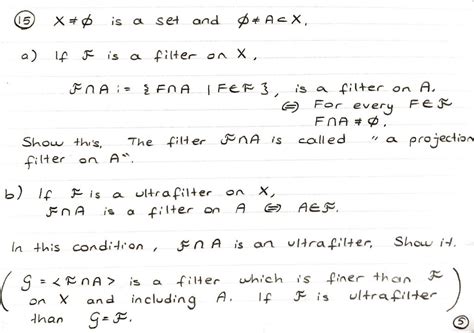 ⑮ X ≠ ∅ is a set and ∅ ≠ A ⊂ X.
a) If 𝓕 is a filter on X,
𝓕∩A := { F∩A | F∈𝓕 }, is a filter on A.
⇔ For every F∈𝓕
F∩A ≠ ∅.
Show this. The filter 𝓕∩A is called "a projection
filter on A".
b) If 𝓕 is a ultrafilter on X,
𝓕∩A is a filter on A ⇔ A∈𝓕.
In this condition, 𝓕∩A is an ultrafilter. Show it.
( 𝒢 = <𝓕∩A> is a filter which is finer than 𝓕
on X and including A. If 𝓕 is ultrafilter
than 𝒢 = 𝓕. )
⑤